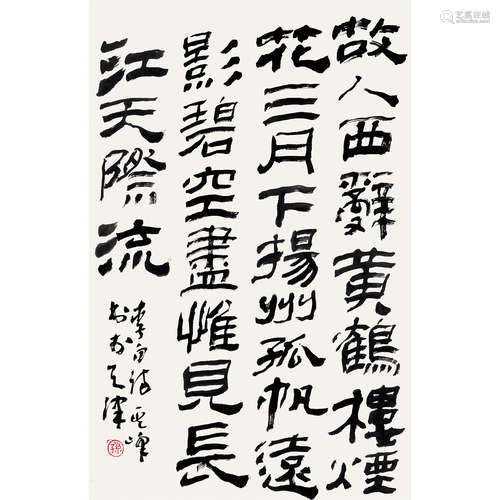 故人西辭黃鶴樓煙
花三月下揚州孤帆遠
影碧空盡惟見長
江天際流
李白詩其峰
書於天津
孫